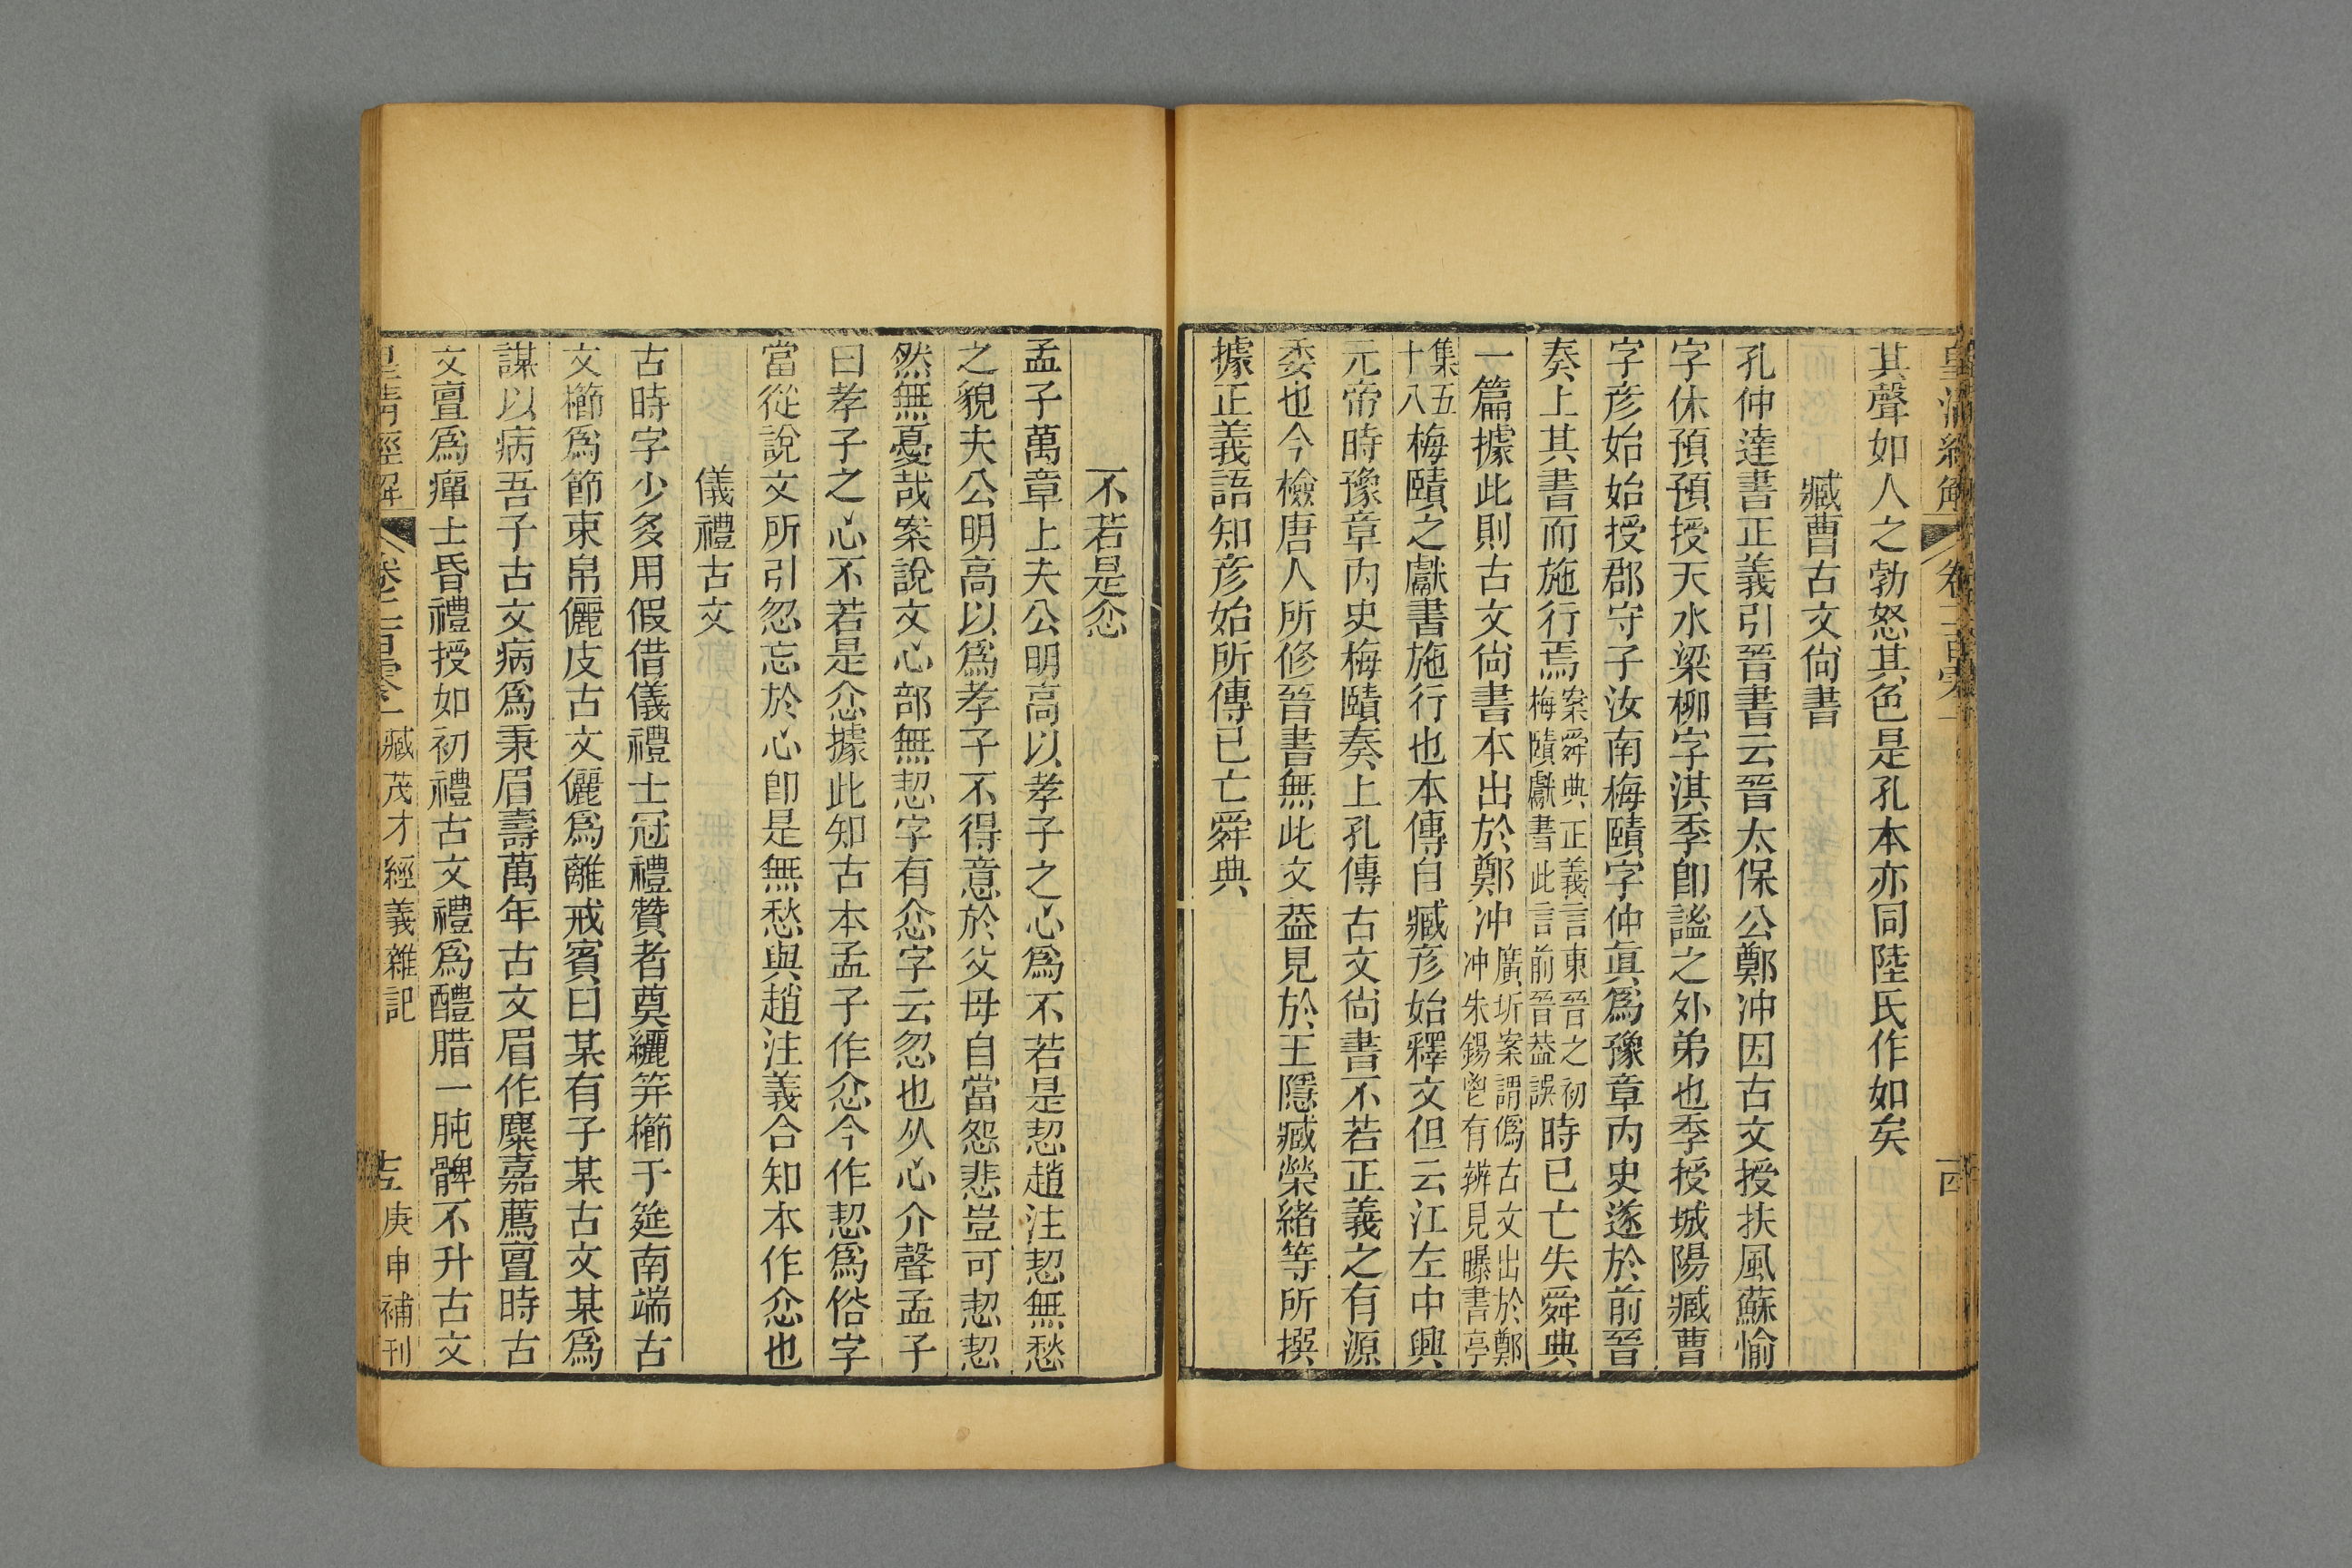 皇淸經解 卷二百零一 十四
其聲如人之勃怒其色是孔本亦同陸氏作如矣
臧曹古文尙書
孔仲達書正義引晉書云晉太保公鄭冲因古文授扶風蘇愉
字休預預授天水梁柳字淇季卽謐之外弟也季授城陽臧曹
字彥始始授郡守子汝南梅賾字仲眞爲豫章內史遂於前晉
奏上其書而施行焉案舜典正義言東晉之初梅賾獻書此言前晉葢誤時已亡失舜典
一篇據此則古文尙書本出於鄭冲廣圻案謂僞古文出於鄭冲朱錫鬯有辨見曝書亭
集五十八梅賾之獻書施行也本傳自臧彥始釋文但云江左中興
元帝時豫章內史梅賾奏上孔傳古文尙書不若正義之有源
委也今檢唐人所修晉書無此文葢見於王隱臧榮緒等所撰
據正義語知彥始所傳已亡舜典
不若是忿
孟子萬章上夫公明高以孝子之心爲不若是恝趙注恝無愁
之貌夫公明高以爲孝子不得意於父母自當怨悲豈可恝恝
然無憂哉案說文心部無恝字有忿字云忽也从心介聲孟子
曰孝子之心不若是忿據此知古本孟子作忿今作恝爲俗字
當從說文所引忽忘於心卽是無愁與趙注義合知本作忿也
儀禮古文
古時字少多用假借儀禮士冠禮贊者奠纚笄櫛于筵南端古
文櫛爲節束帛儷皮古文儷爲離戒賓曰某有子某古文某爲
謀以病吾子古文病爲秉眉壽萬年古文眉作麋嘉薦亶時古
文亶爲癉士昏禮授如初禮古文禮爲醴腊一肫髀不升古文
皇淸經解 卷二百零一 臧茂才經義雜記 十五 庚申補刊